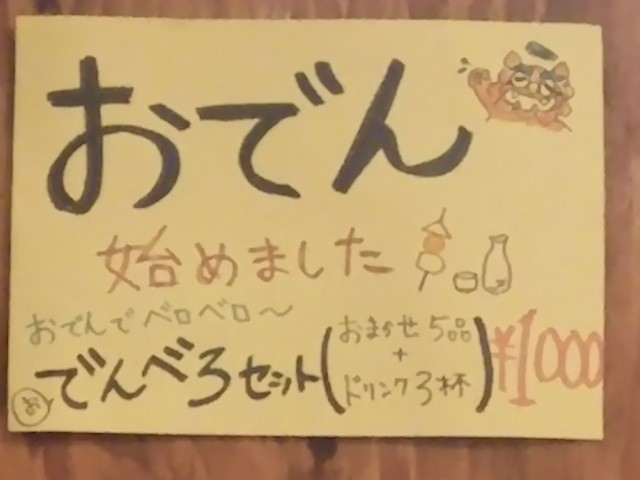 おでん
始めました
おでんでベロベロ〜
お でんべろセット(おまかせ5品+ドリンク3杯)¥1000